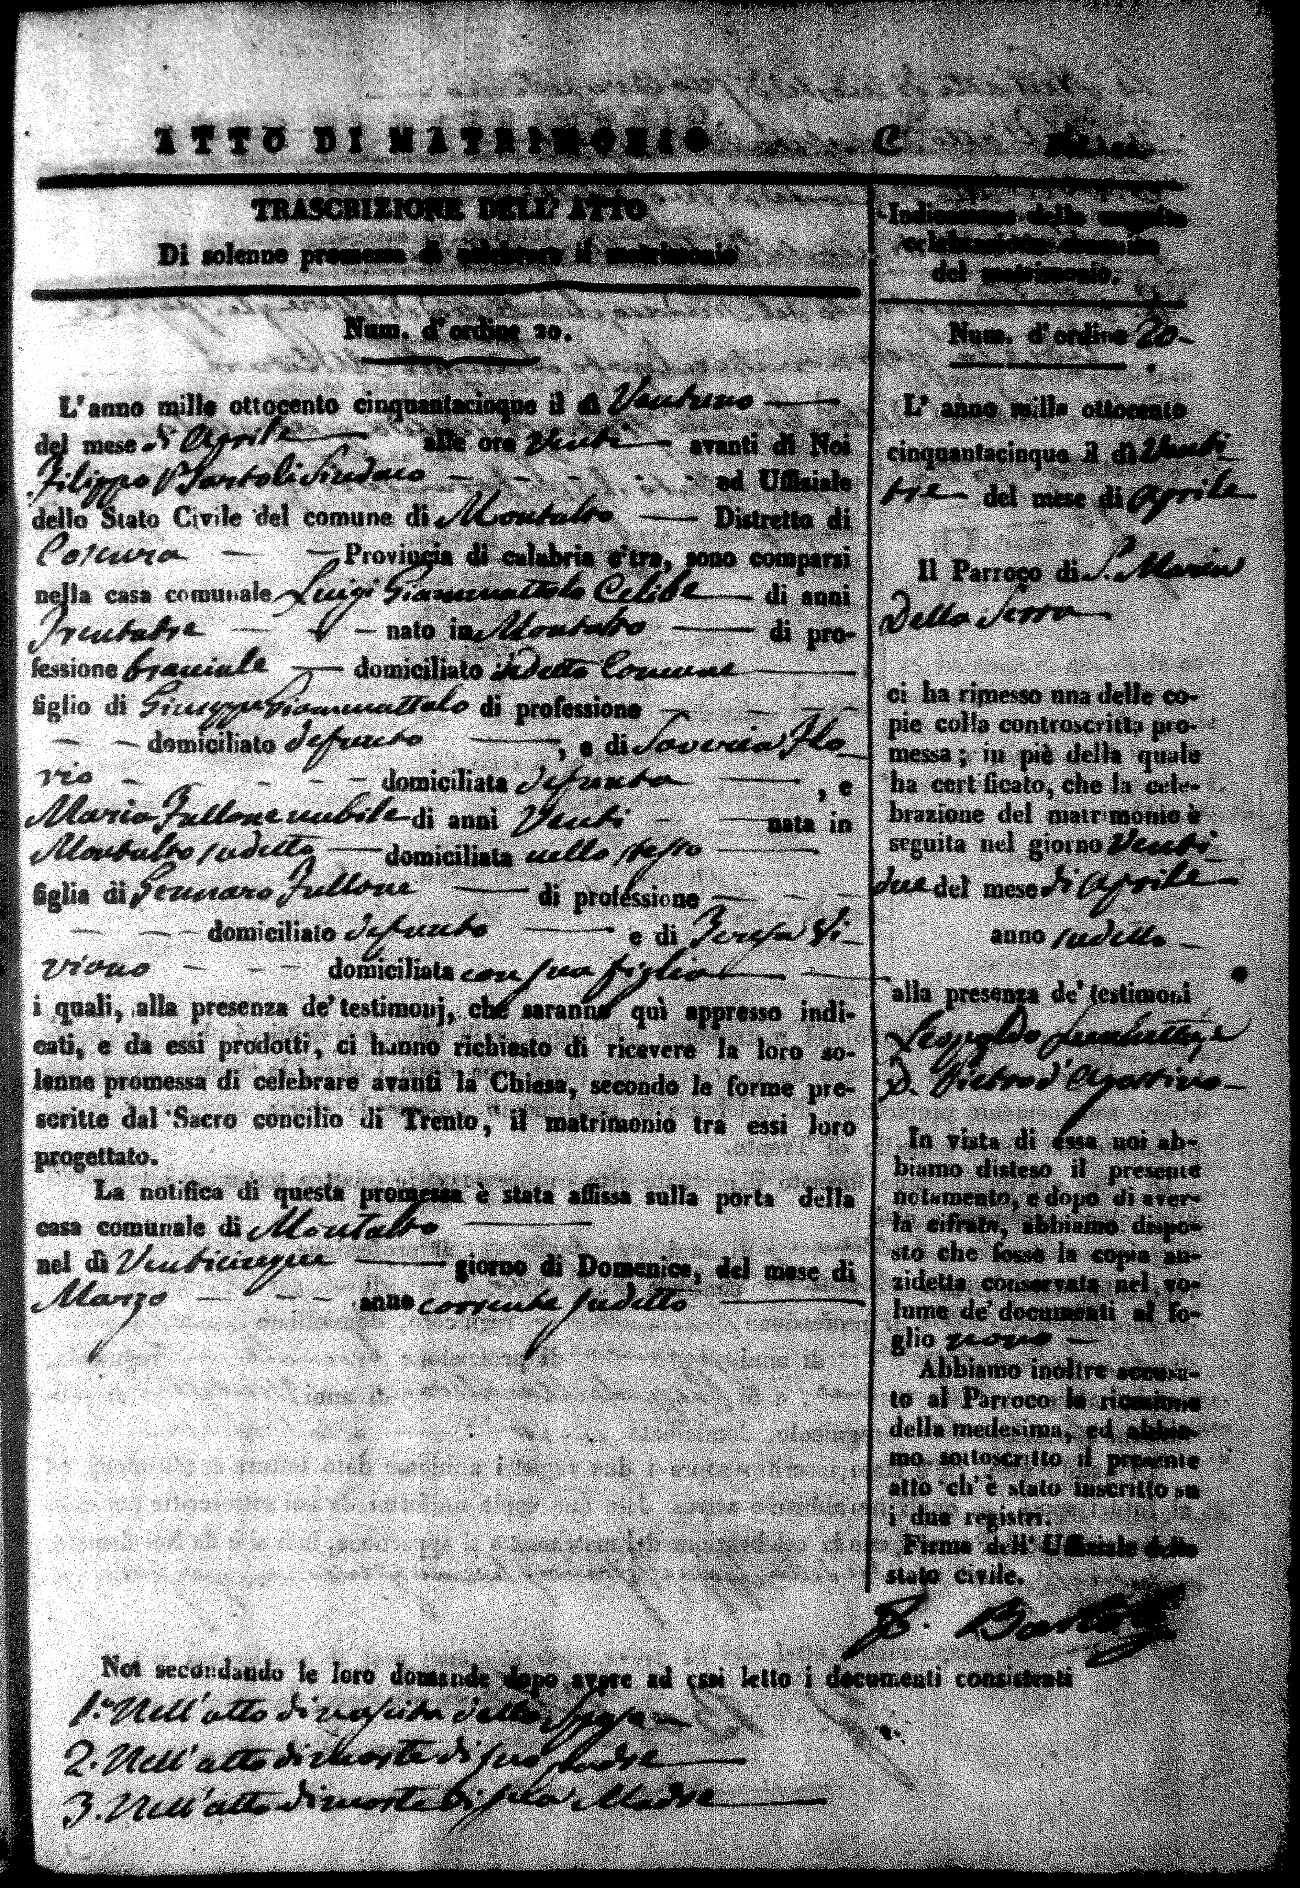 ATTO DI MATRIMONIO
TRASCRIZIONE DELL' ATTO
Di solenne promessa di celebrare il matrimonio
Num. d'ordine 20.
L'anno mille ottocento cinquantacinque il dì Ventuno
del mese di Aprile alle ore venti avanti di Noi
Filippo Bartoli Sindaco ed Uffiziale
dello Stato Civile del comune di Montalto Distretto di
Cosenza Provincia di calabria c'tra, sono comparsi
nella casa comunale Luigi Giammattolo Celibe di anni
Trentatre nato in Montalto di pro-
fessione braciale domiciliato in detto Comune
figlio di Giuseppe Giammattolo di professione
domiciliato defunto , e di Saveria Flo
rio domiciliata defunta , e
Maria Fullone nubile di anni Venti nata in
Montalto sudetto domiciliata nello stesso
figlia di Gennaro Fullone di professione
domiciliato defunto e di Teresa
domiciliata con sua figlia
i quali, alla presenza de' testimonj, che saranno quì appresso indi-
cati, e da essi prodotti, ci hanno richiesto di ricevere la loro so-
lenne promessa di celebrare avanti la Chiesa, secondo le forme pre-
scritte dal Sacro concilio di Trento, il matrimonio tra essi loro
progettato.
La notifica di questa promessa è stata affissa sulla porta della
casa comunale di Montalto
nel dì Venticinque giorno di Domenica, del mese di
Marzo anno corrente sudetto
Noi secondando le loro domande dopo avere ad essi letto i documenti consistenti
1.° Nell'atto di nascita della Sposa
2. Nell'atto di morte di suo padre
3. Nell'atto di morte di sua Madre
Indicazione della seguita
celebrazione
del matrimonio.
Num. d'ordine 20
L' anno mille ottocento
cinquantacinque il dì Venti
tre del mese di Aprile
Il Parroco di S. Maria
Della Serra
ci ha rimesso una delle co-
pie colla controscritta pro-
messa; in piè della quale
ha certificato, che la cele-
brazione del matrimonio è
seguita nel giorno Venti
due del mese di Aprile
anno sudetto
alla presenza de' testimoni
Leopoldo
D. Pietro d'Agostino
In vista di essa noi ab-
biamo disteso il presente
notamento, e dopo di aver-
la cifrata, abbiamo dispo-
sto che fosse la copia an-
zidetta conservata nel vo-
lume de' documenti al fo-
glio nono
Abbiamo inoltre accusa-
to al Parroco la ricezione
della medesima, ed abbia-
mo sottoscritto il presente
atto ch' è stato inscritto su
i due registri.
Firma dell' Uffiziale dello
stato civile.
F. Bartoli